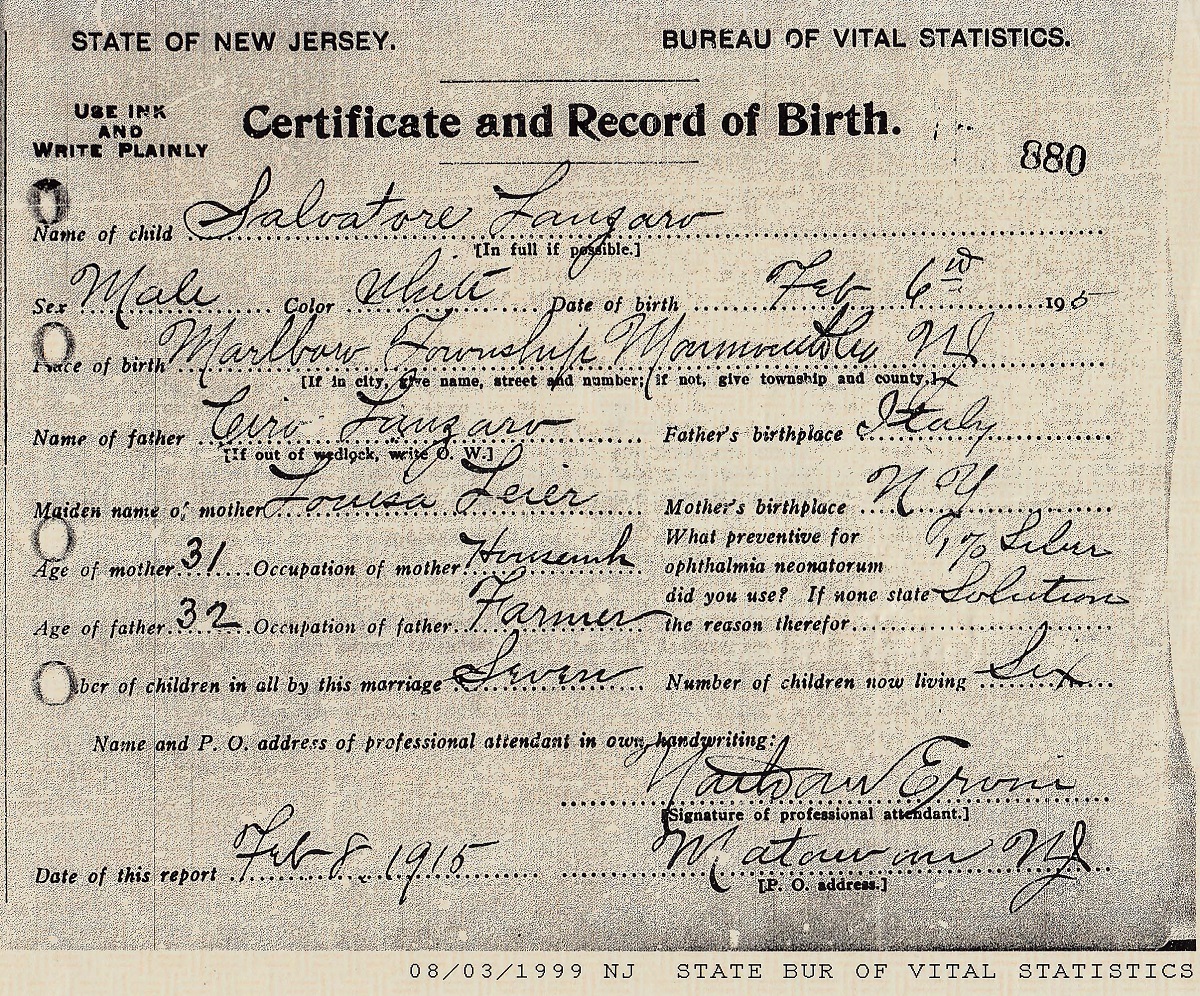 STATE OF NEW JERSEY. BUREAU OF VITAL STATISTICS.
USE INK
AND
WRITE PLAINLY
Certificate and Record of Birth.
880
Name of child Salvatore Lanzaro
[In full if possible.]
Sex Male Color White Date of birth Feb 6 195
Place of birth Marlboro Township Monmouth Co NJ
[If in city, give name, street and number; if not, give township and county.]
Name of father Ciro Lanzaro Father's birthplace Italy
[If out of wedlock, write O. W.]
Maiden name of mother Louisa Leier Mother's birthplace N Y
What preventive for 1% Silver
Age of mother 31 Occupation of mother ophthalmia neonatorum
did you use? If none state Solution
Age of father 32 Occupation of father Farmer the reason therefor
ber of children in all by this marriage Seven Number of children now living Six
Name and P. O. address of professional attendant in own handwriting:
[Signature of professional attendant.]
Date of this report Feb 8, 1915 Matawan NJ
[P. O. address.]
08/03/1999 NJ STATE BUR OF VITAL STATISTICS